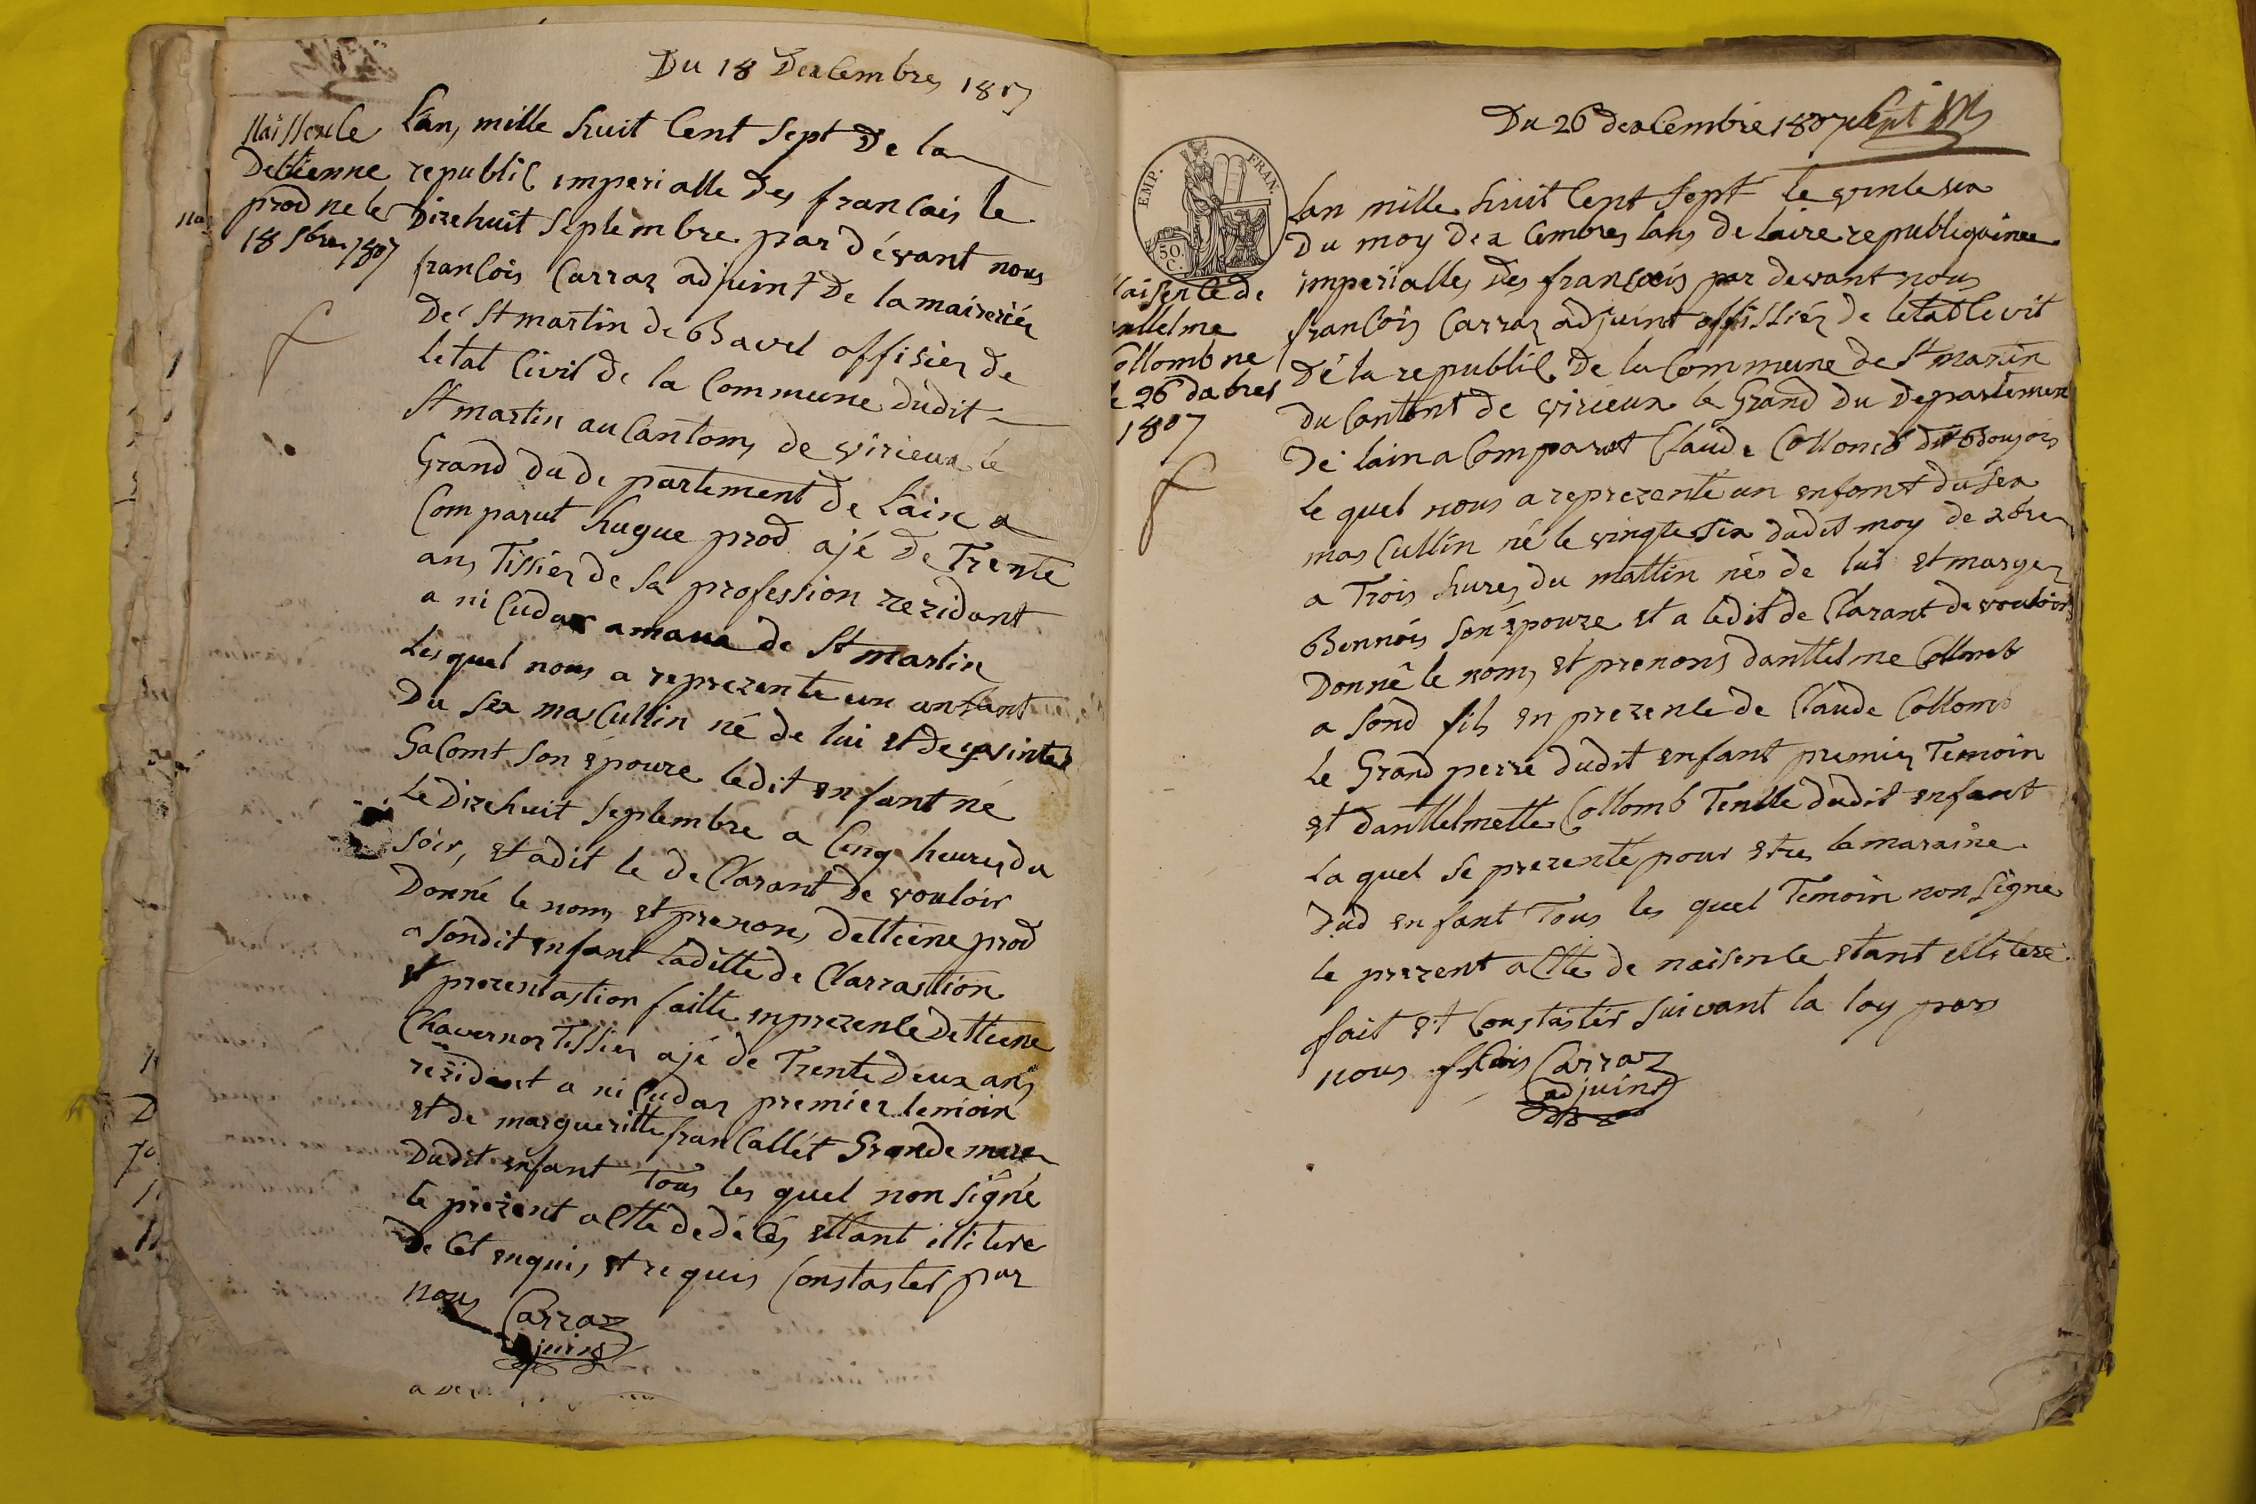 Du 18 Dexcembres 1807
Naissencle
Dettienne
prod ne le
18 sbre 1807
Lan, mille huit Cent Sept De la
republic imperialle des francais le
Dizehuit Septembre par dévant nous
francois Carraz adjuint De la maireriés
De St martin de Bavel offisier de
letat Civil de la Commeune dudit
St martin au Canton, de virieux lé
Grand du departement de Lain a
Comparut hugue prod ajé de Trente
ans Tissier de Sa profession rezidant
a ni Cudaz amaux de St martin
Les quel nous a reprezente eun anfant
Du Sex masCullin né de lui et de
GaComt Son epouze ledit enfant né
Le Dizehuit Septembre a Cinq heures du
Soir, et adit le deClarant de vouloir
Donné le nom, et prenon, dettiene prod
a Sondit enfant Laditte de Clarrastion
et prezentastion faitte en prezencle Dettiene
Chavernoz Tissier ajé de Trente deux ans
rezidant a ni Cudaz premier temoin
et de margueritte franCallet Grande mere
Dudit enfant Tous les quel non Signé
le prezent altte de déCés ettant illitere
De Cet enquis et requis Constaster par
nous Carraz
adjuint
Du 26 dexcembre 1807
EMP. FRAN.
50 C.
aisencle de
antlelme
Collomb ne
le 26 dabres
1807
Lan mille huit Cent Sept le vintesix
Du moy dex Cembres lans de laire republiquinee
imperialles des francois par devant nous
francois Carraz adjuint offissiér de letat Civit
De la republic De la Commeune de St martin
du Cantont de virieux le Grand du Departement
De lain a Comparut Claude Collomb dit Boujon
le quel nous a reprezenté un enfant du Sex
mas Cullin né le vingte Six dudit moy de xbre
a Trois hures du mattin nés de lui et marge
Bennois Son epouze et a ledit de Clarant de vouloir
Donné le nom, et prenons danttelme Collomb
a Sond fils en prezencle de Claude Collomb
le Grand perre dudit enfant premier Temoin
et danttelmette Collomb Tentte dudit enfant
La quel se prezente pour etre la maraine
dud enfant Tous les quel Temoin non Signe
le prezent altte de naisencle etant illitere
fait et Constaster Suivant la loy par
nous fCois Carraz
adjuint